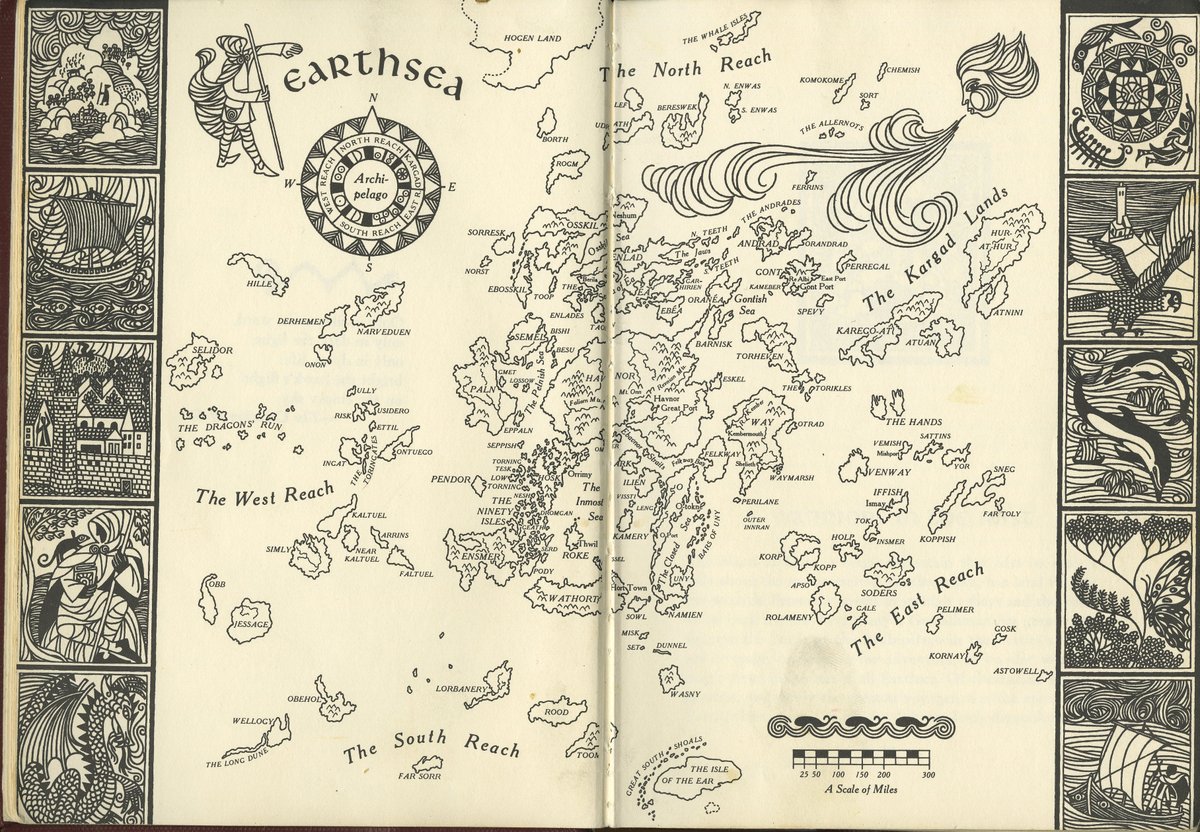 EARTHSEA
N
W
E
S
NORTH REACH
KARGAD
EAST R
SOUTH REACH
WEST REACH
Archi-
pelago
HOGEN LAND
THE WHALE ISLES
The North Reach
KOMOKOME
CHEMISH
SORT
N. ENWAS
S. ENWAS
BERESWEK
THE ALLERNOTS
BORTH
ROGM
FERRINS
The Kargad Lands
HUR-
AT-HUR
ATNINI
KAREGO-AT
ATUAN
SORRESK
NORST
OSSKIL
EBOSSKIL
TOOP
ENLADES
THE ANDRADES
ANDRAD
ORANDRAD
N. TEETH
The Jaws
S. TEETH
GONT
Re Albi
East Port
Gont Port
KAMEBER
PERREGAL
SPEVY
ORANEA
Gontish
Sea
BARNISK
TORHEVEN
HILLE
DERHEMEN
NARVEDUEN
ONON
SELIDOR
THE DRAGONS' RUN
ULLY
RISK
USIDERO
ETTIL
INGAT
THE TORINGATES
ONTUEGO
SEMEL
BISHI
BESU
GMET
LOSSOW
PALN
The Pelnish Sea
EPPALN
SEPPISH
Faliern Mts.
Mt. Onn
Havnor
Great Port
ESKEL
THE TORIKLES
WAY
Kembermouth
OTRAD
FELKWAY
Shelieth
WAYMARSH
PERILANE
OUTER
INNRAN
THE HANDS
SATTINS
VEMISH
Mishport
VENWAY
YOR
SNEG
FAR TOLY
KOPPISH
IFFISH
Ismay
TOK
INSMER
HOLP
KORP
KOPP
APSO
SODERS
ROLAMENY
GALE
PELIMER
KORNAY
GOSK
ASTOWELL
The East Reach
The West Reach
PENDOR
TORNING
TESK
LOW
TORNING
NESH
HOSK
Orrimy
THE
NINETY
ISLES
DROMGAN
The
Inmost
Sea
Thwil
ROKE
SERD
PODY
ENSMER
WATHORT
KALTUEL
SIMLY
NEAR
KALTUEL
ARRINS
FALTUEL
OBB
JESSAGE
ILIEN
VISSTI
LENG
KAMERY
O
O-tokne
O-Port
The Closed Sea
BARS OF UNY
UNY
Hort Town
NAMIEN
SOWL
MISK
SET
DUNNEL
WASNY
OBEHOL
WELLOGY
THE LONG DUNE
LORBANERY
ROOD
TOOM
FAR SORR
The South Reach
GREAT SOUTH SHOALS
THE ISLE
OF THE EAR
25 50 100 150 200 300
A Scale of Miles